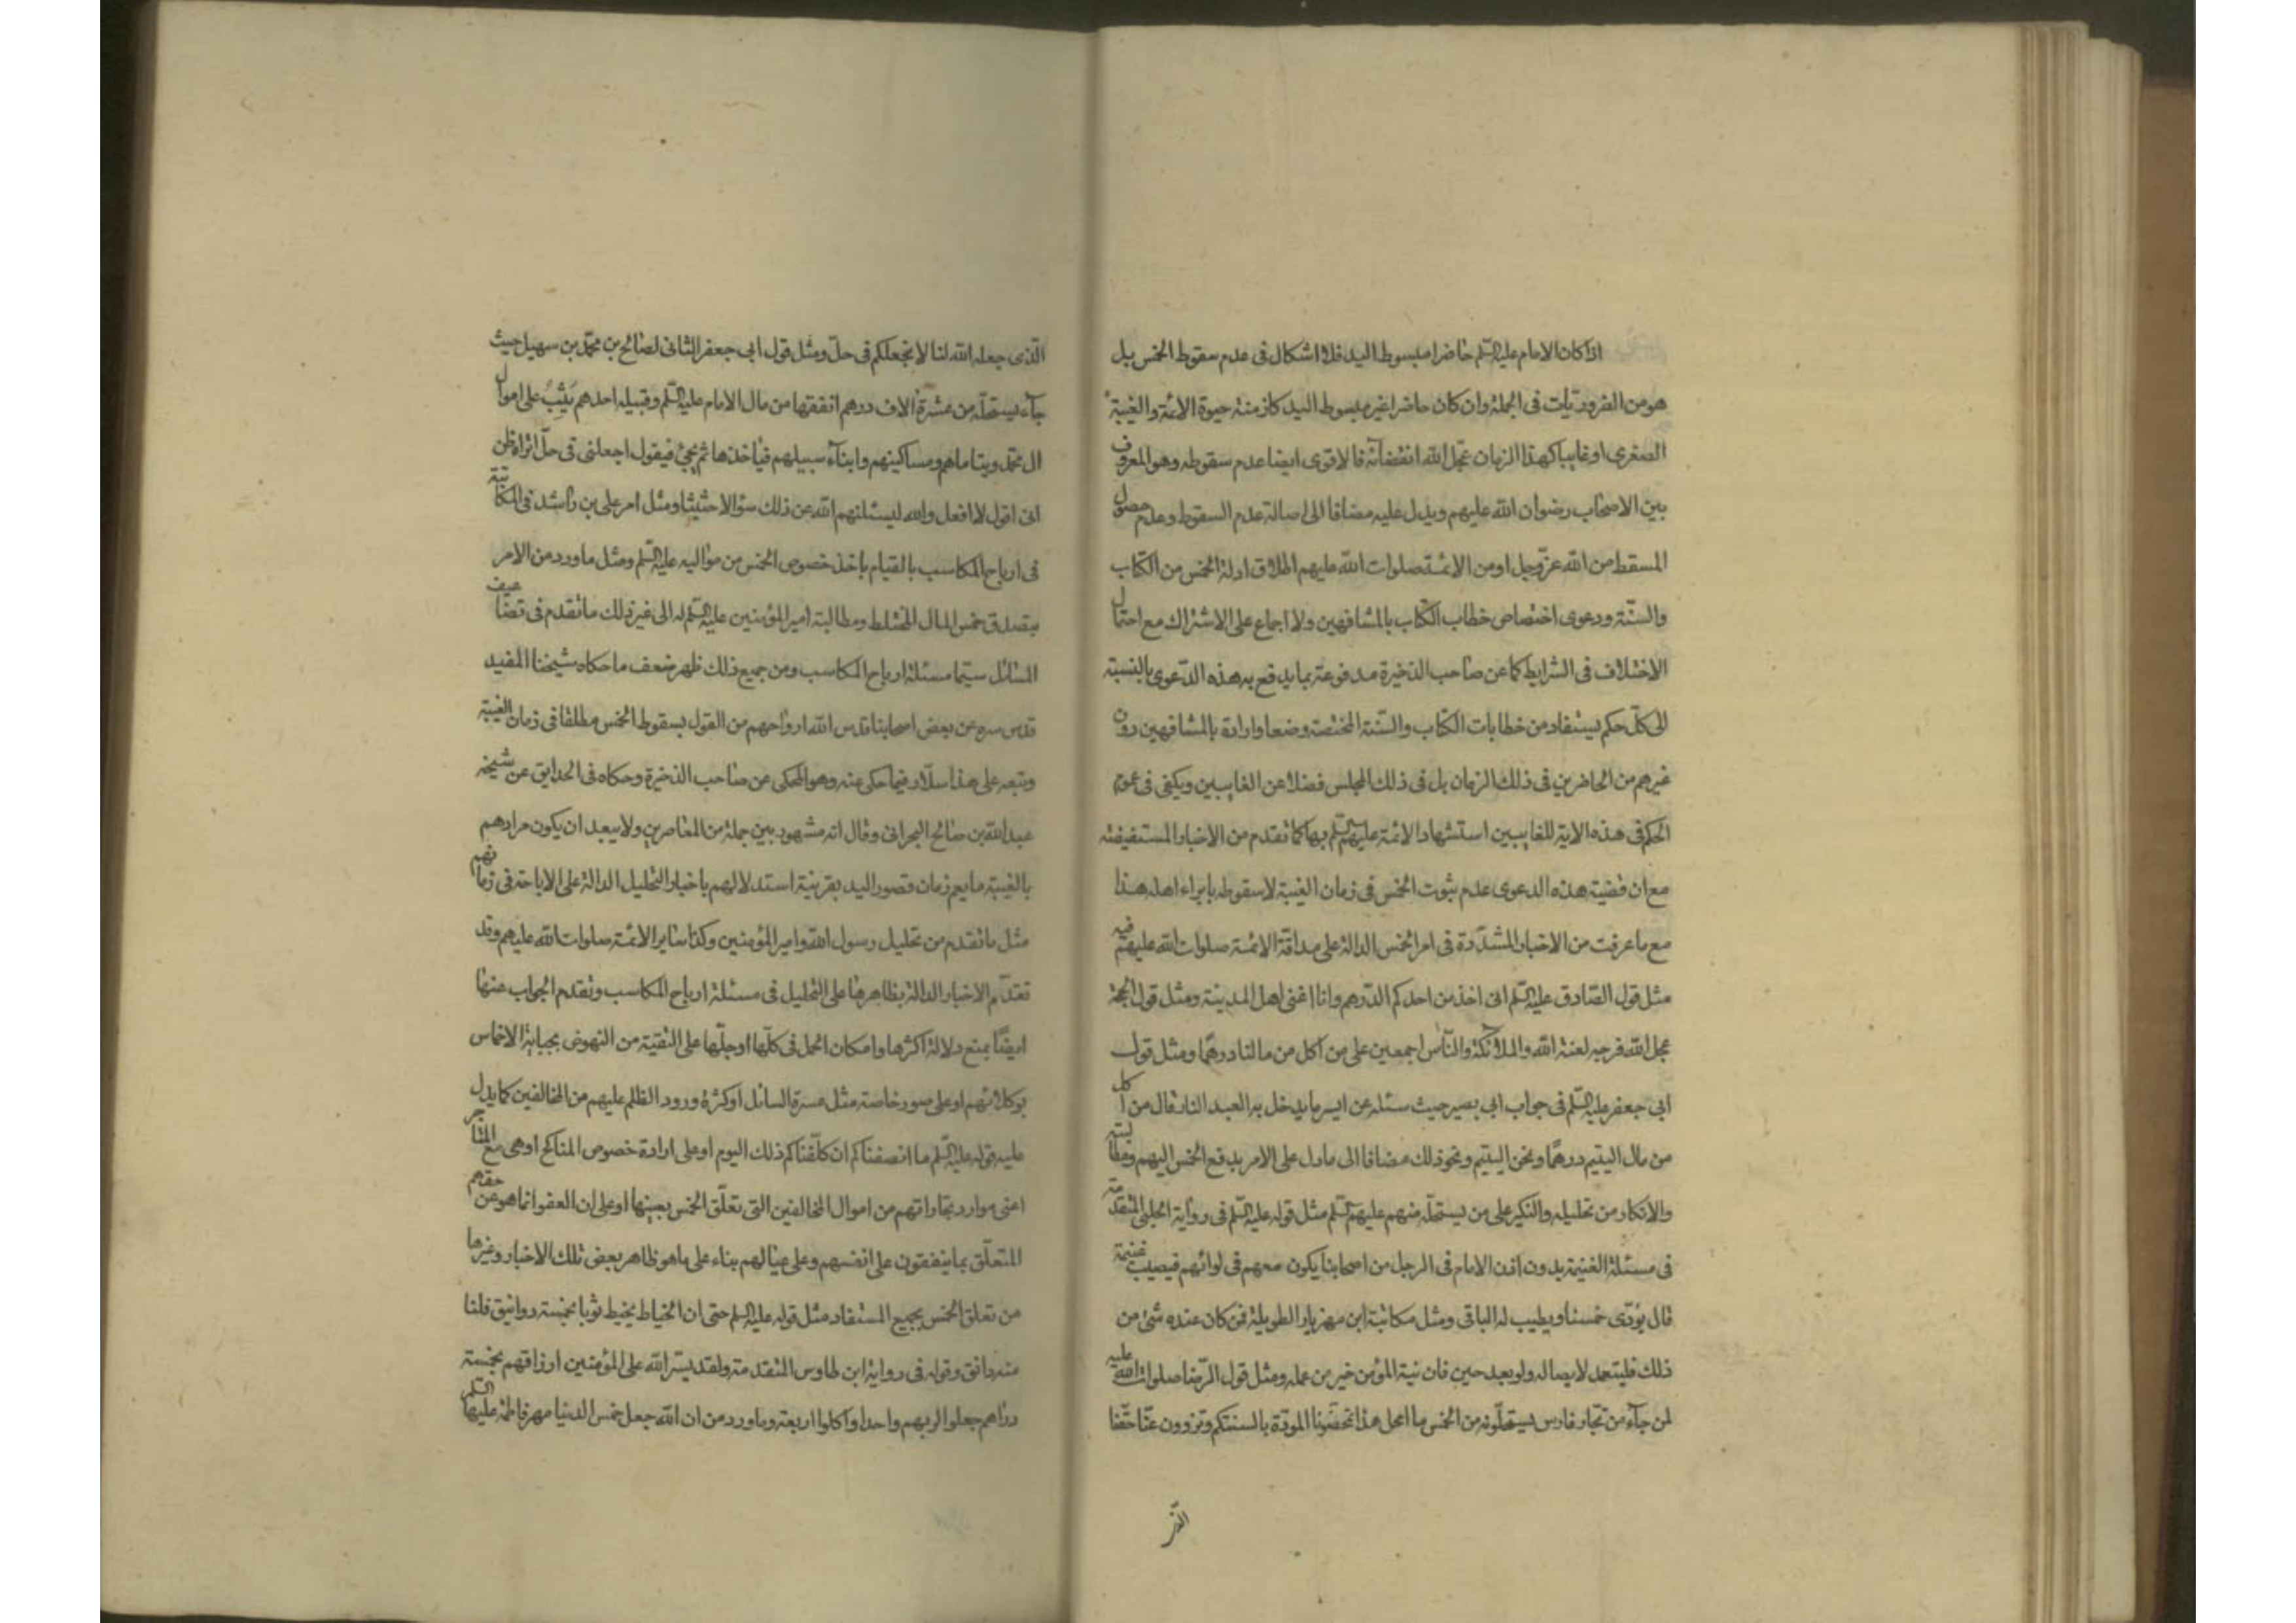 اذا كان الامام عليه السلم حاضرا مبسوط اليد فلا اشكال فى عدم سقوط الخمس بل
هو من الضروريات فى الجملة وان كان حاضرا غير مبسوط اليد كازمنة حيوة الائمة والغيبة
الصغرى او غايبا كهذا الزمان عجل الله انقضائه فالاقوى ايضا عدم سقوطه وهو المعروف
بين الاصحاب رضوان الله عليهم ويدل عليه مضافا الى اصالة عدم السقوط وعدم حصول
المسقط من الله عز وجل او من الائمة صلوات الله عليهم اطلاق ادلة الخمس من الكتاب
والسنة ودعوى اختصاص خطاب الكتاب بالمشافهين ولا اجماع على الاشتراك مع احتمال
الاختلاف فى الشرايط كما عن صاحب الذخيرة مدفوعة بما يدفع به هذه الدعوى بالنسبة
الى كل حكم يستفاد من خطابات الكتاب والسنة المختصة وضعا وارادة بالمشافهين دون
غيرهم من الحاضرين فى ذلك الزمان بل فى ذلك المجلس فضلا عن الغايبين ويكفى فى عموم
الحكم فى هذه الاية للغايبين استشهاد الائمة عليهم السلم بها كما تقدم من الاخبار المستفيضة
مع ان قضية هذه الدعوى عدم ثبوت الخمس فى زمان الغيبة لا سقوطه بابراء اهله هذا
مع ما عرفت من الاخبار المشددة فى امر الخمس الدالة على مداقة الائمة صلوات الله عليهم فيه
مثل قول الصادق عليه السلم انى اخذ من احدكم الدرهم وانا اغنى اهل المدينة ومثل قول الحجة
عجل الله فرجه لعنة الله والملائكة والناس اجمعين على من اكل من مالنا درهما ومثل قول
ابى جعفر عليه السلم فى جواب ابى بصير حيث سئله عن ايسر ما يدخل به العبد النار قال من اكل
من مال اليتيم درهما ونحن اليتيم ونحو ذلك مضافا الى ما دل على الامر بدفع الخمس اليهم ومطالبته
والانكار من تحليله والنكير على من يستحله منهم عليهم السلم مثل قوله عليه السلم فى رواية الحلبى المتقدمة
فى مسئلة الغنيمة بدون اذن الامام فى الرجل من اصحابنا يكون معهم فى لوائهم فيصيب غنيمة
قال يؤدى خمسنا ويطيب له الباقى ومثل مكاتبة ابن مهزيار الطويلة فمن كان عنده شئ من
ذلك فليتعمد لايصاله ولو بعد حين فان نية المؤمن خير من عمله ومثل قول الرضا صلوات الله عليه
لمن جاء من تجار فارس يستحلونه من الخمس ما امحل هذا تمحضونا المودة بالسنتكم وتزوون عنا حقنا
الذى جعله الله لنا لا نجعلكم فى حل ومثل قول ابى جعفر الثانى لصالح بن محمد بن سهيل حيث
جاء يستحله من عشرة الاف درهم انفقها من مال الامام عليه السلم وقبيله احدهم يثب على اموال
ال محمد ويتاماهم ومساكينهم وابناء سبيلهم فياخذها ثم يجئ فيقول اجعلنى فى حل اتراه ظن
انى اقول لا افعل والله ليسئلنهم الله عن ذلك سؤالا حثيثا ومثل امر على بن راشد فى المكاتبة
فى ارباح المكاسب بالقيام باخذ خصوص الخمس من مواليه عليه السلم ومثل ما ورد من الامر
بتصدق خمس المال المختلط ومطالبة امير المؤمنين عليه السلم له الى غير ذلك ما تقدم فى تضاعيف
المسائل سيما مسئلة ارباح المكاسب ومن جميع ذلك ظهر ضعف ما حكاه شيخنا المفيد
قدس سره عن بعض اصحابنا قدس الله ارواحهم من القول بسقوط الخمس مطلقا فى زمان الغيبة
وتبعه على هذا سلار فيما حكى عنه وهو المحكى عن صاحب الذخيرة وحكاه فى الحدايق عن شيخه
عبد الله بن صالح البحرانى وقال انه مشهور بين جملة من المعاصرين ولا يبعد ان يكون مرادهم
بالغيبة ما يعم زمان قصور اليد بقرينة استدلالهم باخبار التحليل الدالة على الاباحة فى زمانهم
مثل ما تقدم من تحليل رسول الله وامير المؤمنين وكذا ساير الائمة صلوات الله عليهم وقد
تقدم الاخبار الدالة بظاهرها على التحليل فى مسئلة ارباح المكاسب وتقدم الجواب عنها
ايضا بمنع دلالة اكثرها وامكان الحمل فى كلها او جلها على التقية من النهوض بجباية الاخماس
بوكلائهم او على صور خاصة مثل عسرة السائل او كثرة ورود الظلم عليهم من المخالفين كما يدل
عليه قوله عليه السلم ما انصفناكم ان كلفناكم ذلك اليوم او على ارادة خصوص المناكح او هى مع المتاجر
اعنى موارد تجاراتهم من اموال المخالفين التى تعلق الخمس بعينها او على ان العفو انما هو عن حقهم
المتعلق بما ينفقون على انفسهم وعلى عيالهم بناء على ما هو ظاهر بعض تلك الاخبار وغيرها
من تعلق الخمس بجميع المستفاد مثل قوله عليه السلم حتى ان الخياط يخيط ثوبا بخمسة دوانيق فلنا
منه دانق وقوله فى رواية ابن طاوس المتقدمة ولقد يسر الله على المؤمنين ارزاقهم بخمسة
دراهم جعلوا لربهم واحدا واكلوا اربعة وما ورد من ان الله جعل خمس الدنيا مهر فاطمة عليها السلم